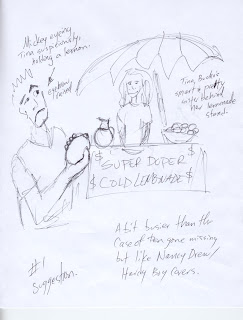 Mickey eyeing
Tina suspiciously,
holding a lemon.
eyebrow
raised
Tina,
smart & pretty
wife behind
her lemonade
stand.
$ SUPER DUPER $
$ COLD LEMONADE $
A bit busier than the
Case of then gone missing
but like Nancy Drew/
Hardy Boy covers.
#1
Suggestion.